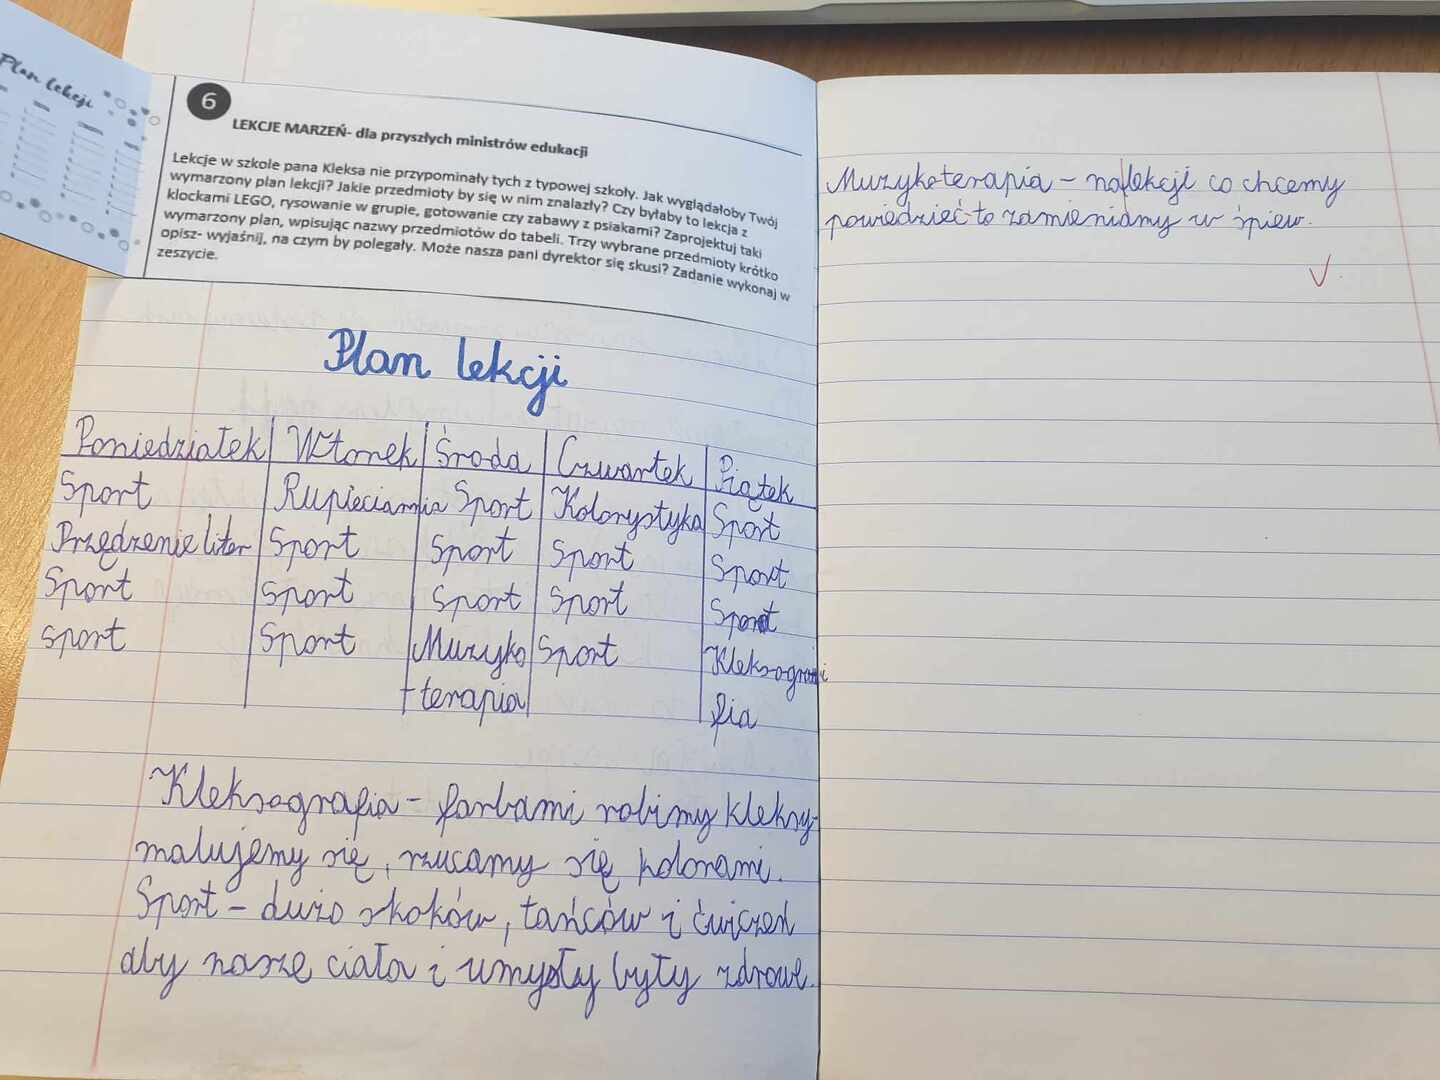 Plan lekcji
6
LEKCJE MARZEŃ- dla przyszłych ministrów edukacji
Lekcje w szkole pana Kleksa nie przypominały tych z typowej szkoły. Jak wyglądałoby Twój
wymarzony plan lekcji? Jakie przedmioty by się w nim znalazły? Czy byłaby to lekcja z
klockami LEGO, rysowanie w grupie, gotowanie czy zabawy z psiakami? Zaprojektuj taki
wymarzony plan, wpisując nazwy przedmiotów do tabeli. Trzy wybrane przedmioty krótko
opisz- wyjaśnij, na czym by polegały. Może nasza pani dyrektor się skusi? Zadanie wykonaj w
zeszycie.
Plan lekcji
Poniedziałek Wtorek Środa Czwartek Piątek
Sport Rupieciarnia Sport Kolorystyka Sport
Przędzenie liter Sport Sport Sport Sport
Sport Sport Sport Sport Sport
sport Sport Muzyko Sport Kleksogra
terapia fia
Kleksografia – farbami robimy kleksy,
malujemy się, rzucamy się kolorami.
Sport – dużo skoków, tańców i ćwiczeń
aby nasze ciała i umysły były zdrowe.
Muzykoterapia – na lekcji co chcemy
powiedzieć to zamieniamy w śpiew.